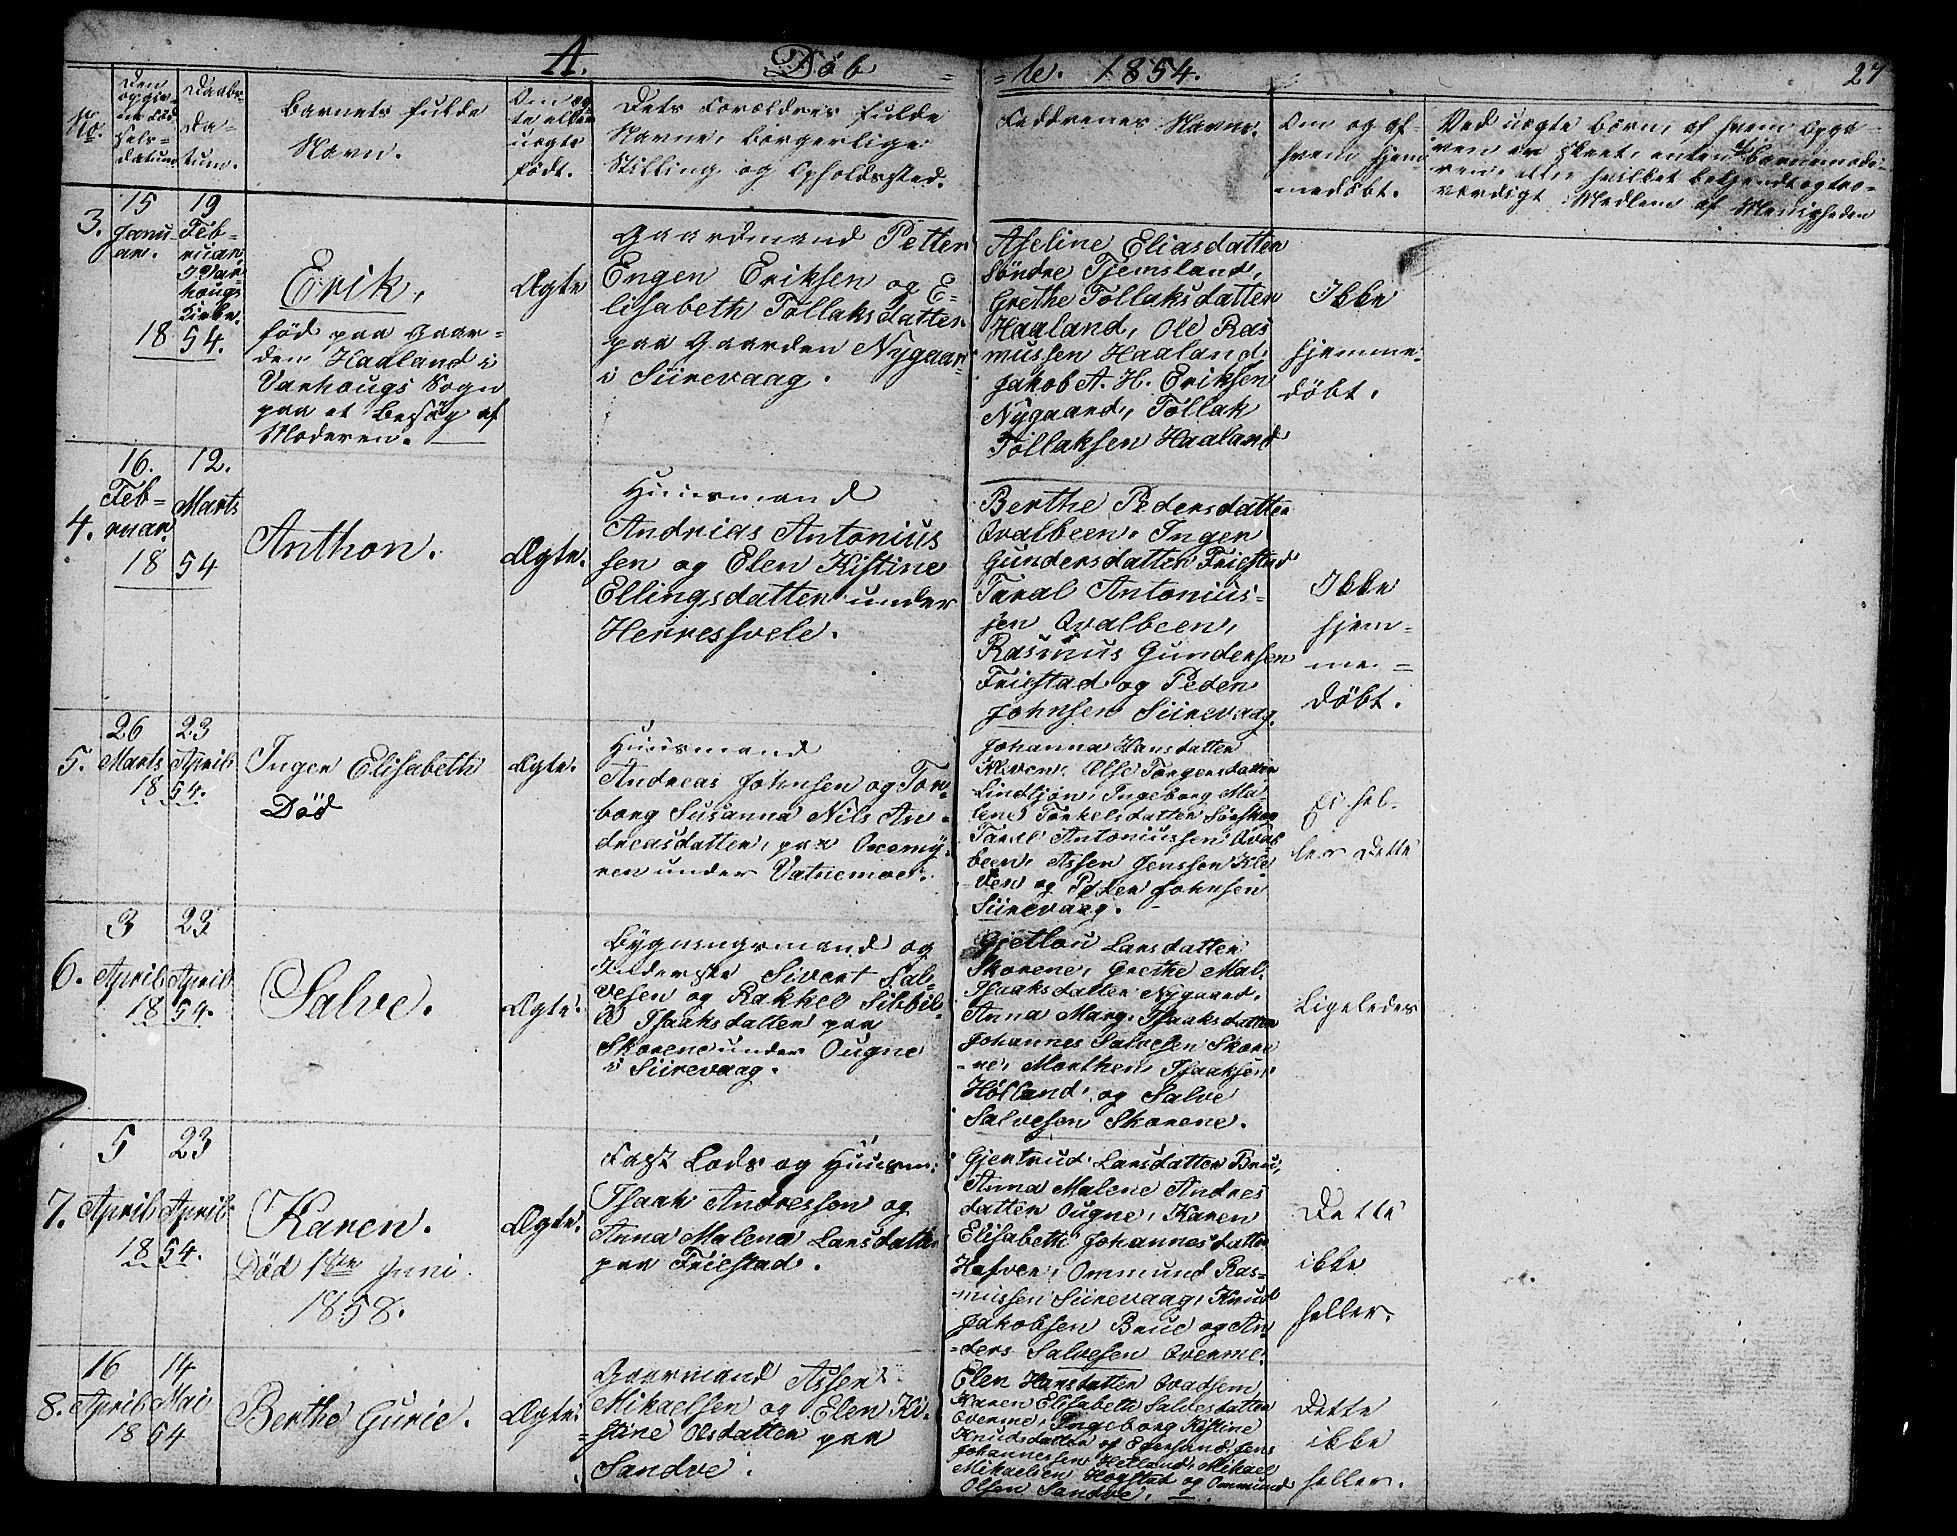 A. Døb = = te. 1854. 27
No.
Den
opgiv-
ne Fød-
sels-
datum
Daabs-
Da-
tum.
Barnets fulde
Navn.
Om æg-
te eller
uægte
født.
Dets Forældres fulde
Navne, borgerlige
Stilling og Opholdssted.
Faddrenes Navne.
Om og af
hvem hjem-
medøbt.
Ved uægte børn, af hvem Opga-
ven er skeet, enten af barnemode-
ren, eller hvilket bekjendt og tro-
værdigt Medlem af Menigheden
3.
15
Janu-
ar.
18
19
Feb-
ruar,
i Var-
hougs
Kirke.
54.
Erik,
født paa Gaar-
den Haaland i
Varhougs Sogn
paa et Besøg af
Moderen.
Ægte
Gaardmand Petter
Engen Eriksen og E-
lisabeth Tollaksdatter
paa Gaarden Nygaar-
i Siirevaag.
Aseline Eliasdatter
Søndre Tjemsland,
Grethe Tollaksdatter
Haaland, Ole Ras
mussen Haaland,
Jakob A. H. Eriksen
Nygaard, Tollak
Tollaksen Haaland
Ikke
hjemme-
døbt.
4.
16.
Feb-
ruar.
18
12.
Marts
54
Anthon.
Ægte.
Huusmand
Andrias Antonius
sen og Elen Kistine
Ellingsdatter under
Herresvele.
Berthe Pedersdatter
Qvalbeen, Inger
Gundersdatter Friestad
Taral Antonius-
sen Qvalbeen,
Rasmus Gundersen
Friestad og Peder
Johnsen Siirevaag.
Ikke
hjem-
me-
døbt.
5.
26
Marts
18
23
April
54.
Inger Elisabeth
Død
Ægte.
Huusmand
Andreas Johnsen og Tor-
borg Susanna Nils An-
dreasdatter, paa Oremy-
ren under Vatnemoe.
Johanna Hansdatter
Kleven, Else Torgersdatter
Lindtjøn, Ingeborg Ma-
lene Torkelsdatter Sørskog
Tarel Antoniussen Qval-
been, Assen Jenssen Kle-
ven og Petter Johnsen
Siirevaag.
Ei hel-
ler Dette
6.
3
April
18
23
April
54.
Salve.
Ægte.
Bygningsmand og
Inderste Sivert Sal-
vesen og Rakkel Sibbil-
le Isaaksdatter paa
Skorene under Ougne
i Siirevaag.
Gjetlou Larsdatter
Skorene, Grethe Mal.
Isaaksdatter Nygaard,
Anna Marg. Isaaksdatter
Johannes Salvesen Skore
-ne, Morthen Isaaksen
Hølland, og Salve
Salvesen Skorene.
Ligeledes
7.
5
April
18
23
April
54.
Karen.
Død 18de Juni
1858.
Ægte.
Fast Lods og Huusm.
Isaak Andressen og
Anna Malena Larsdatter
paa Friestad.
Gjertrud Larsdatter Bru,
Anna Malene Andres
datter Ougne, Karen
Elisabeth Johannesdatter
Hafver, Ommund Ras-
mussen Siirevaag, Knud
Jakobsen Brue og An
-ders Salvesen Qverme.
Dette
ikke
heller.
8.
16
April
18
14
Mai
54
Berthe Gurie.
Ægte.
Gaarmand Assen
Mikaelsen og Elen Ki-
stine Olsdatter paa
Sandve.
Elen Hansdatter Qvadsem,
Karen Elisabeth Salvesdatter
Qverme, Ingeborg Kistine
Knudsdatter af Egersund, Jens
Johannessen Hetland, Mikael
Mikaelsen Hogstad og Ommund
Olsen Sandve.
Dette
ikke
heller.